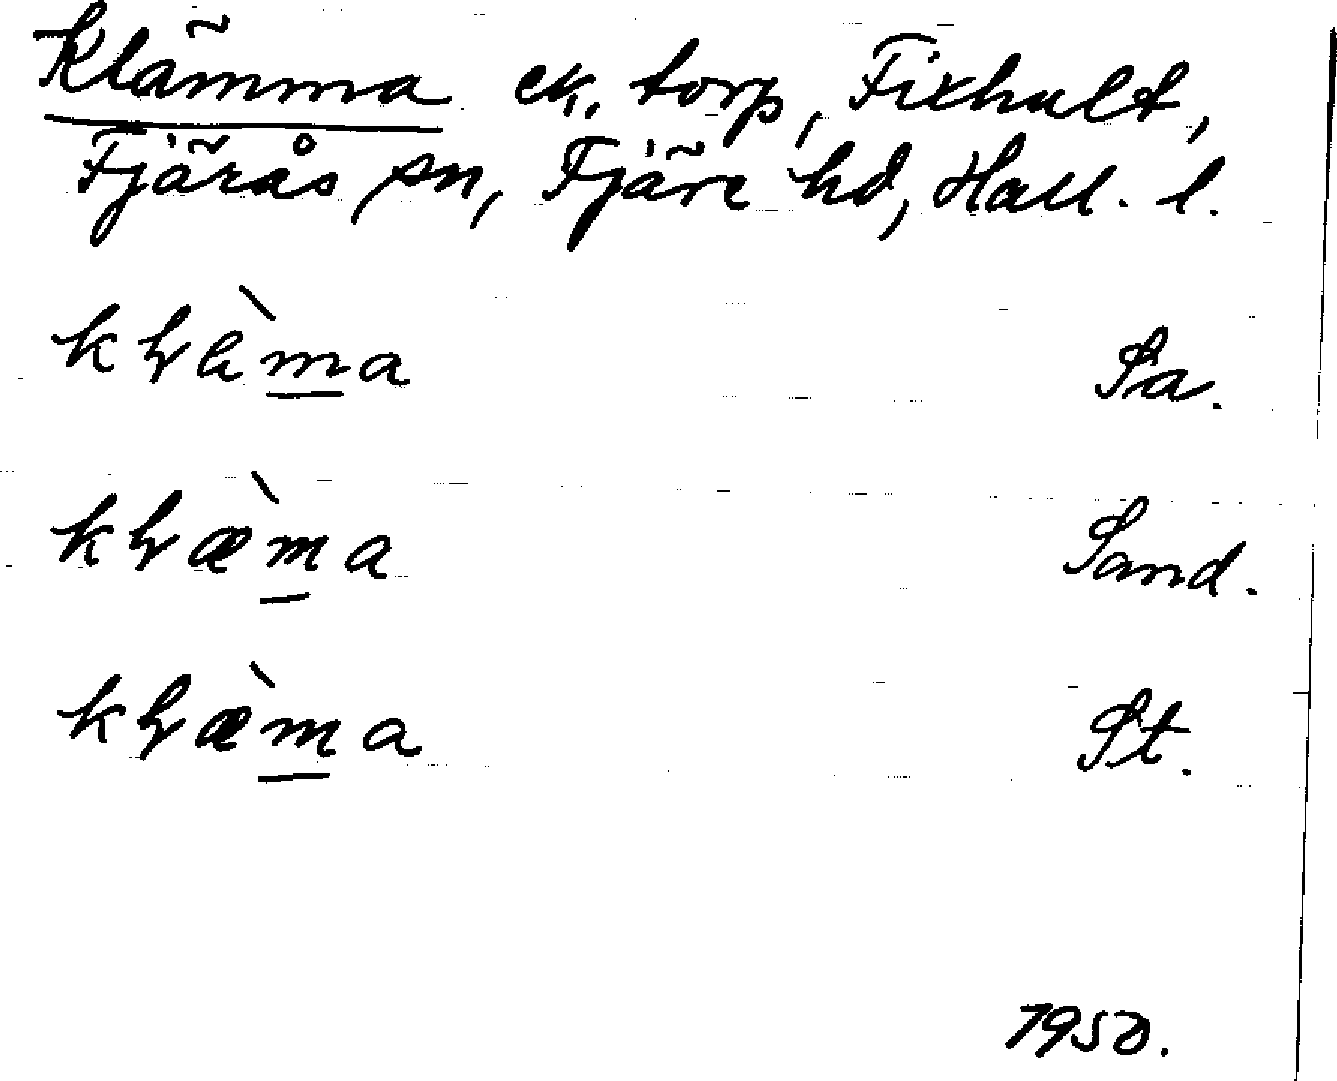 Klämma ek, torp, Fixhult,
Fjärås sn, Fjäre hd, Hall. l.
kɽàma Sa.
kɽæ̀ma Sand.
kɽæ̀ma St.
1950.